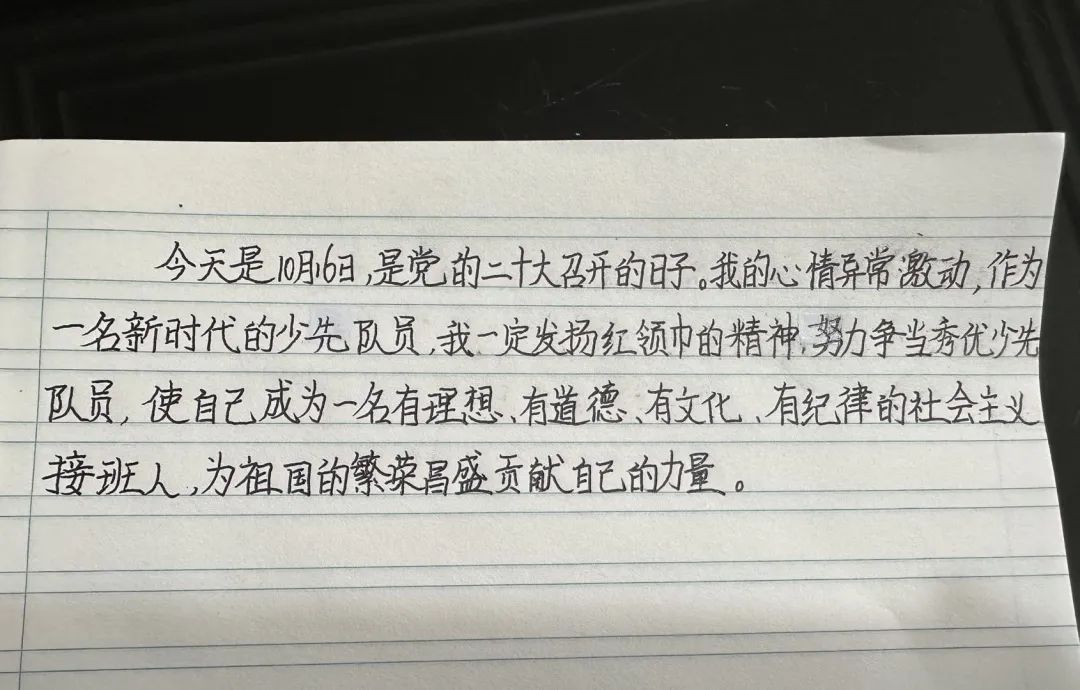 今天是10月16日,是党的二十大召开的日子。我的心情异常激动,作为
一名新时代的少先队员,我一定发扬红领巾的精神,努力争当秀优少先
队员,使自己成为一名有理想、有道德、有文化、有纪律的社会主义
接班人,为祖国的繁荣昌盛贡献自己的力量。